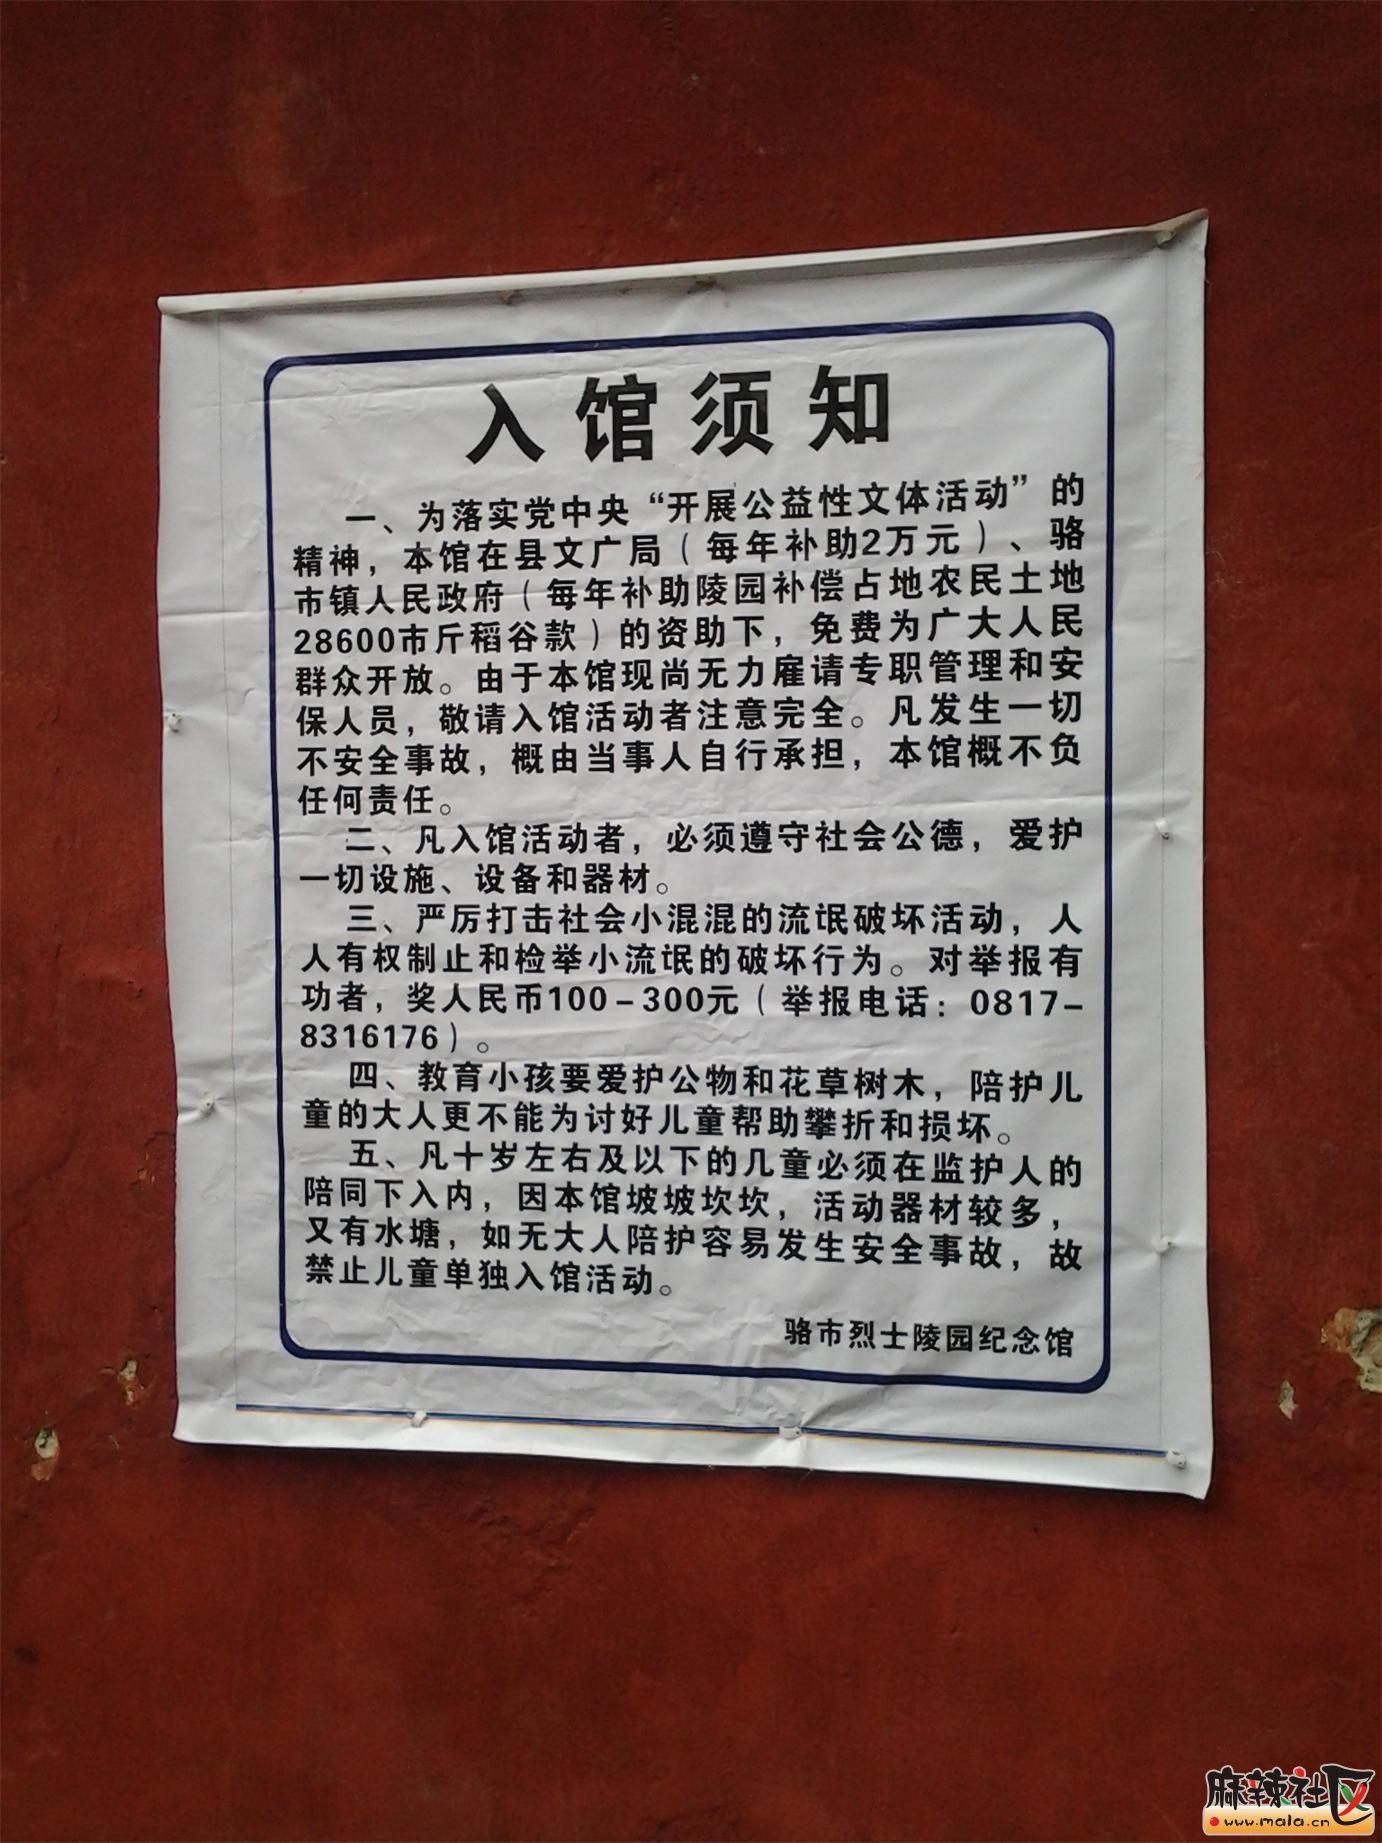 入馆须知
一、为落实党中央“开展公益性文体活动”的
精神，本馆在县文广局（每年补助2万元）、骆
市镇人民政府（每年补助陵园补偿占地农民土地
28600市斤稻谷款）的资助下，免费为广大人民
群众开放。由于本馆现尚无力雇请专职管理和安
保人员，敬请入馆活动者注意完全。凡发生一切
不安全事故，概由当事人自行承担，本馆概不负
任何责任。
二、凡入馆活动者，必须遵守社会公德，爱护
一切设施、设备和器材。
三、严厉打击社会小混混的流氓破坏活动，人
人有权制止和检举小流氓的破坏行为。对举报有
功者，奖人民币100－300元（举报电话：0817-
8316176）。
四、教育小孩要爱护公物和花草树木，陪护儿
童的大人更不能为讨好儿童帮助攀折和损坏。
五、凡十岁左右及以下的几童必须在监护人的
陪同下入内，因本馆坡坡坎坎，活动器材较多，
又有水塘，如无大人陪护容易发生安全事故，故
禁止儿童单独入馆活动。
骆市烈士陵园纪念馆
麻辣社区
www.mala.cn